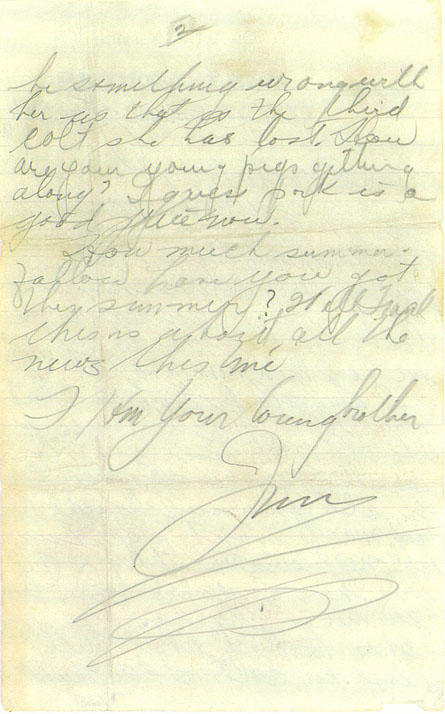 2
be something wrong with
her as that is the third
colt she has lost. How
are your young pigs getting
along? I guess pork is a
good price now.
How much summer-
fallow have you got
this summer? Well Frank
this is about all the
news this time
From Your loving brother
Jim